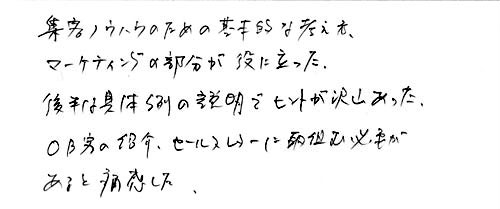 集客ノウハウのための基本的な考え方、
マーケティングの部分が役に立った。
後半は具体例の説明でヒントが沢山あった。
OB客の紹介、セールスレターに取組む必要が
あると痛感した。